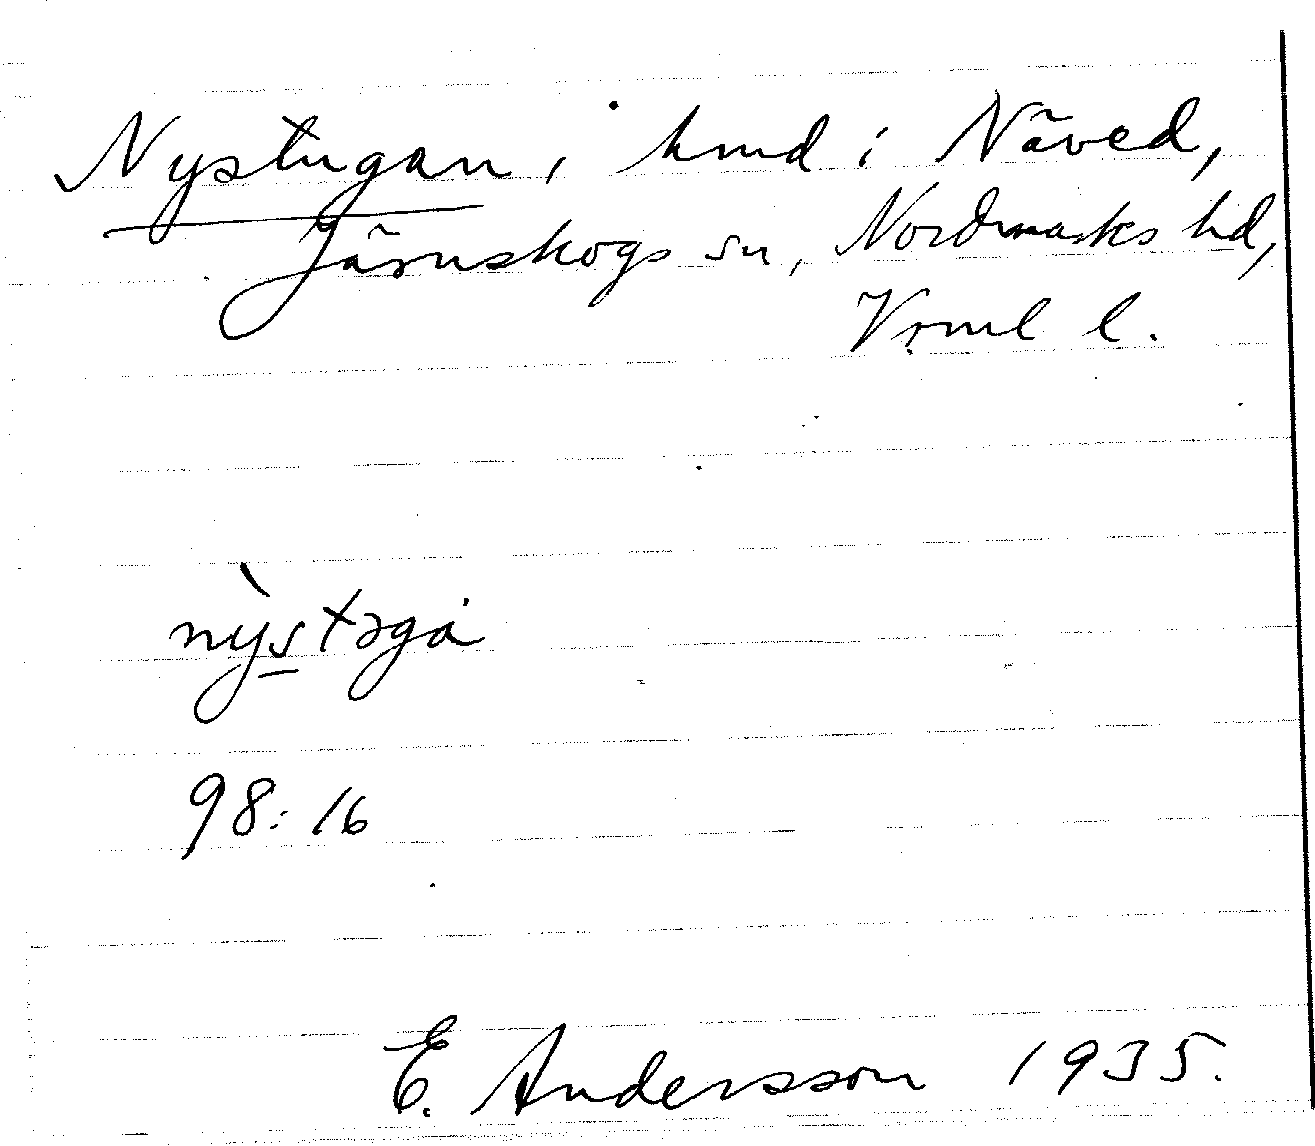 Nystugan, hmd i Näved,
Järnskogs sn, Nordmarks hd,
Vrml l.
nỳstəga
98:16
E. Andersson 1935.